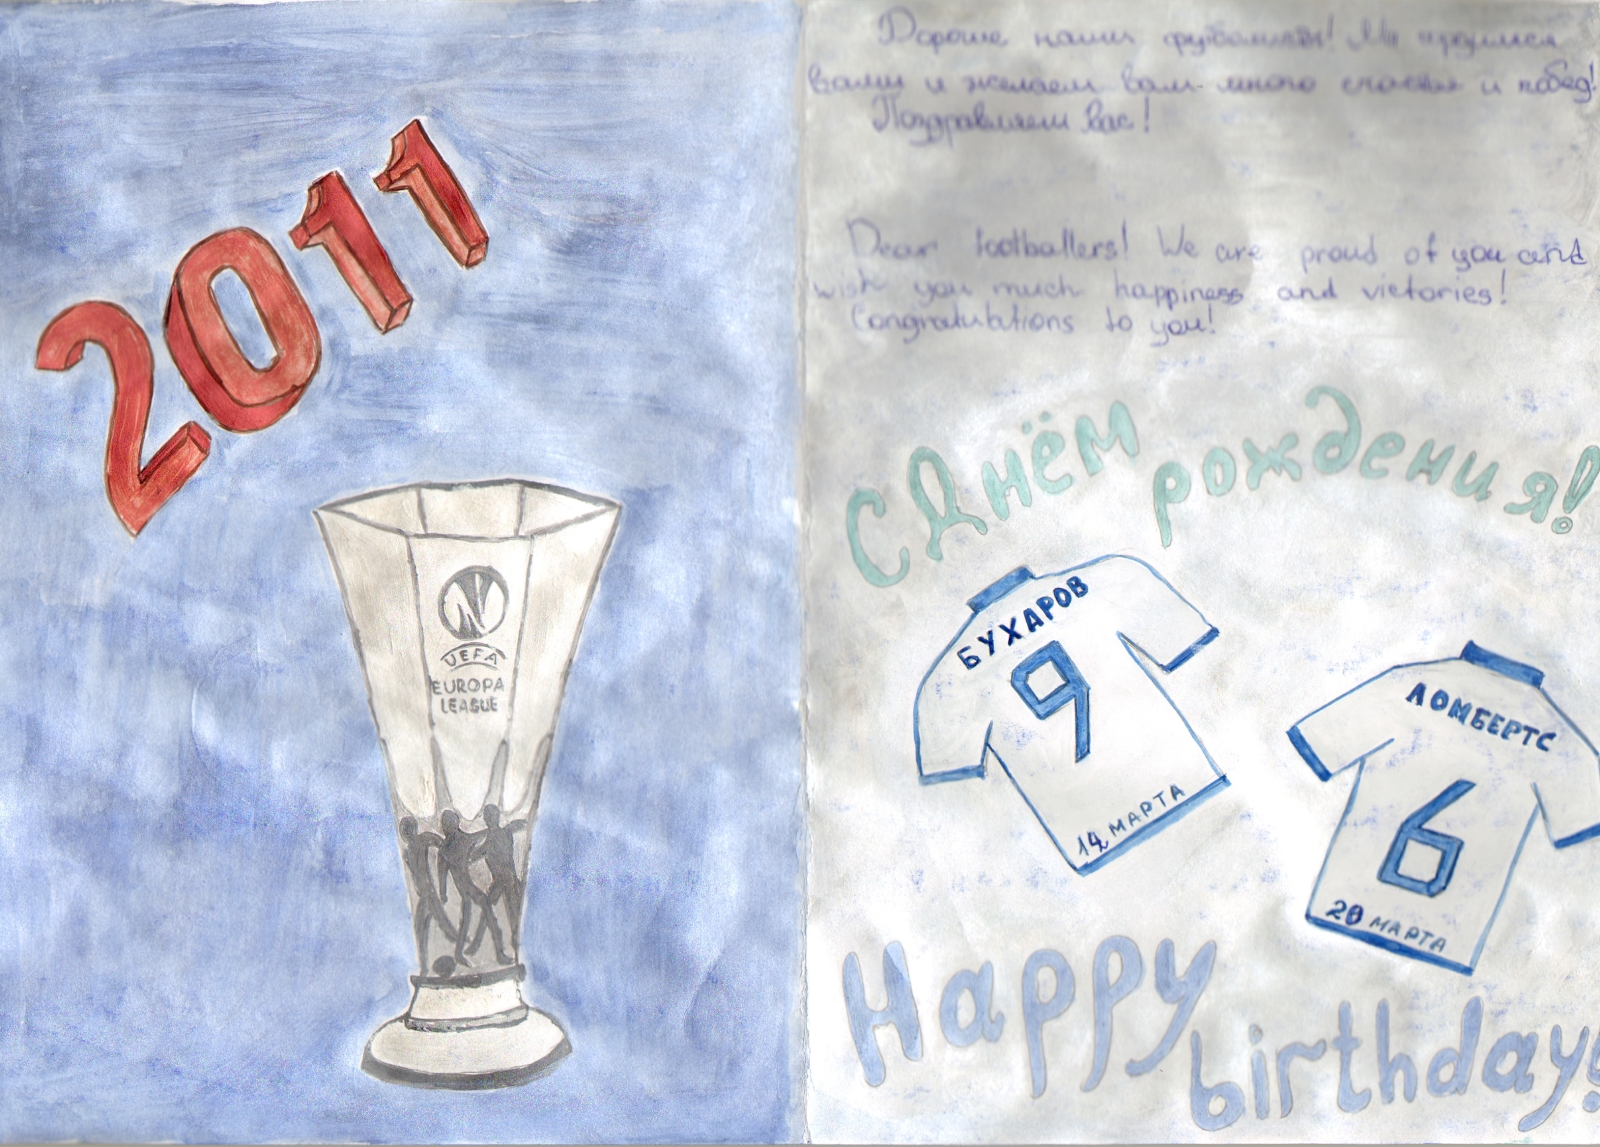 2011
UEFA
EUROPA
LEAGUE
Дорогие наши футболисты! Мы гордимся
вами и желаем вам много счастья и побед!
Поздравляем вас!
Dear footballers! We are proud of you and
wish you much happiness and victories!
Congratulations to you!
С Днём рождения!
БУХАРОВ
9
14 МАРТА
ЛОМБЕРТС
6
20 МАРТА
Happy
birthday!